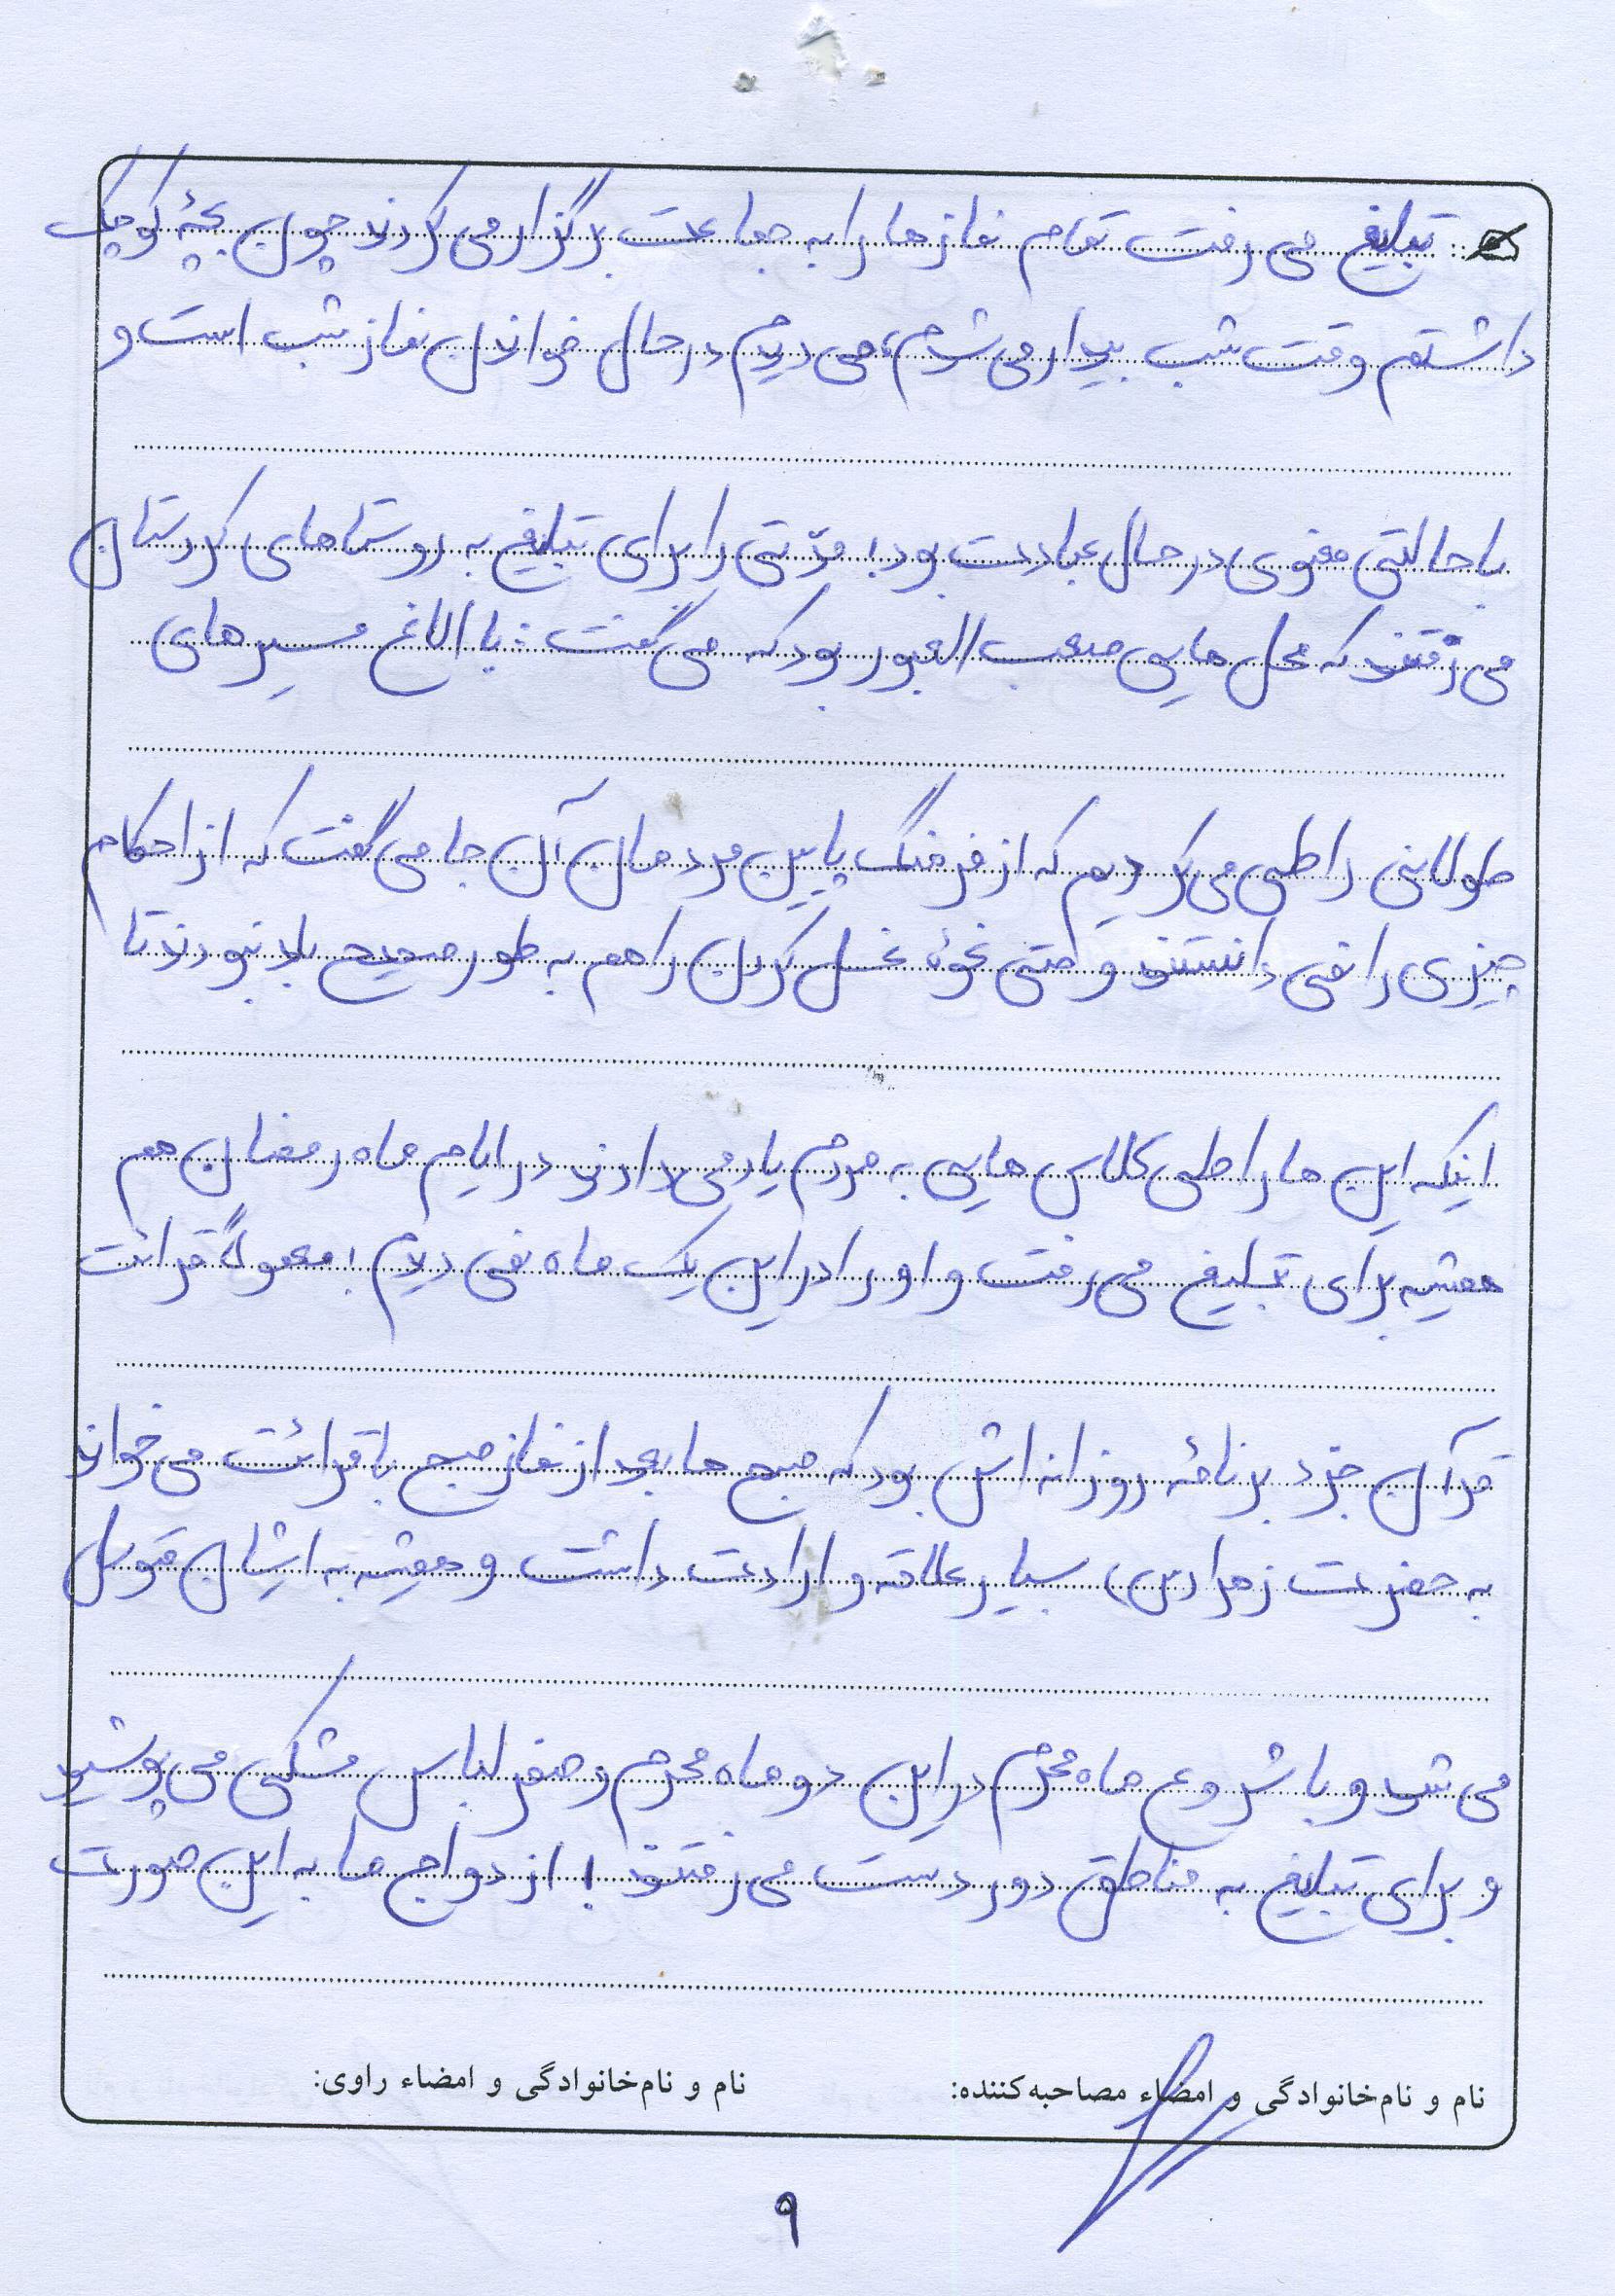 تبلیغ می رفت تمام نمازها را به جماعت برگزار می کردند چون بچۀ کوچک
داشتم وقت شب بیدار می شدم، می دیدم در حال خواندن نماز شب است و
با حالتی معنوی در حال عبادت بود! مدّتی را برای تبلیغ به روستاهای کردستان
می رفتند که محل هایی صعب العبور بود که می گفت: با الاغ مسیرهای
طولانی را طی می کردیم که از فرهنگ پایین مردمان آن جا می گفت که از احکام
چیزی را نمی دانستند و حتی نحوۀ غسل کردن را هم به طور صحیح بلد نبودند تا
اینکه این ها را طی کلاس هایی به مردم یاد می دادند در ایام ماه رمضان هم
همیشه برای تبلیغ می رفت و او را در این یک ماه نمی دیدم! معمولاً قرائت
قرآن جزء برنامۀ روزانه اش بود که صبح ها بعد از نماز صبح با قرائت می خواند
به حضرت زهرا (س) بسیار علاقه و ارادت داشت و همیشه به ایشان متوسل
می شد و با شروع ماه محرم در این دو ماه محرم و صفر لباس مشکی می پوشید
و برای تبلیغ به مناطق دور دست می رفتند! ازدواج ما به این صورت
نام و نام‌خانوادگی و امضاء مصاحبه‌کننده:
نام و نام‌خانوادگی و امضاء راوی:
۹